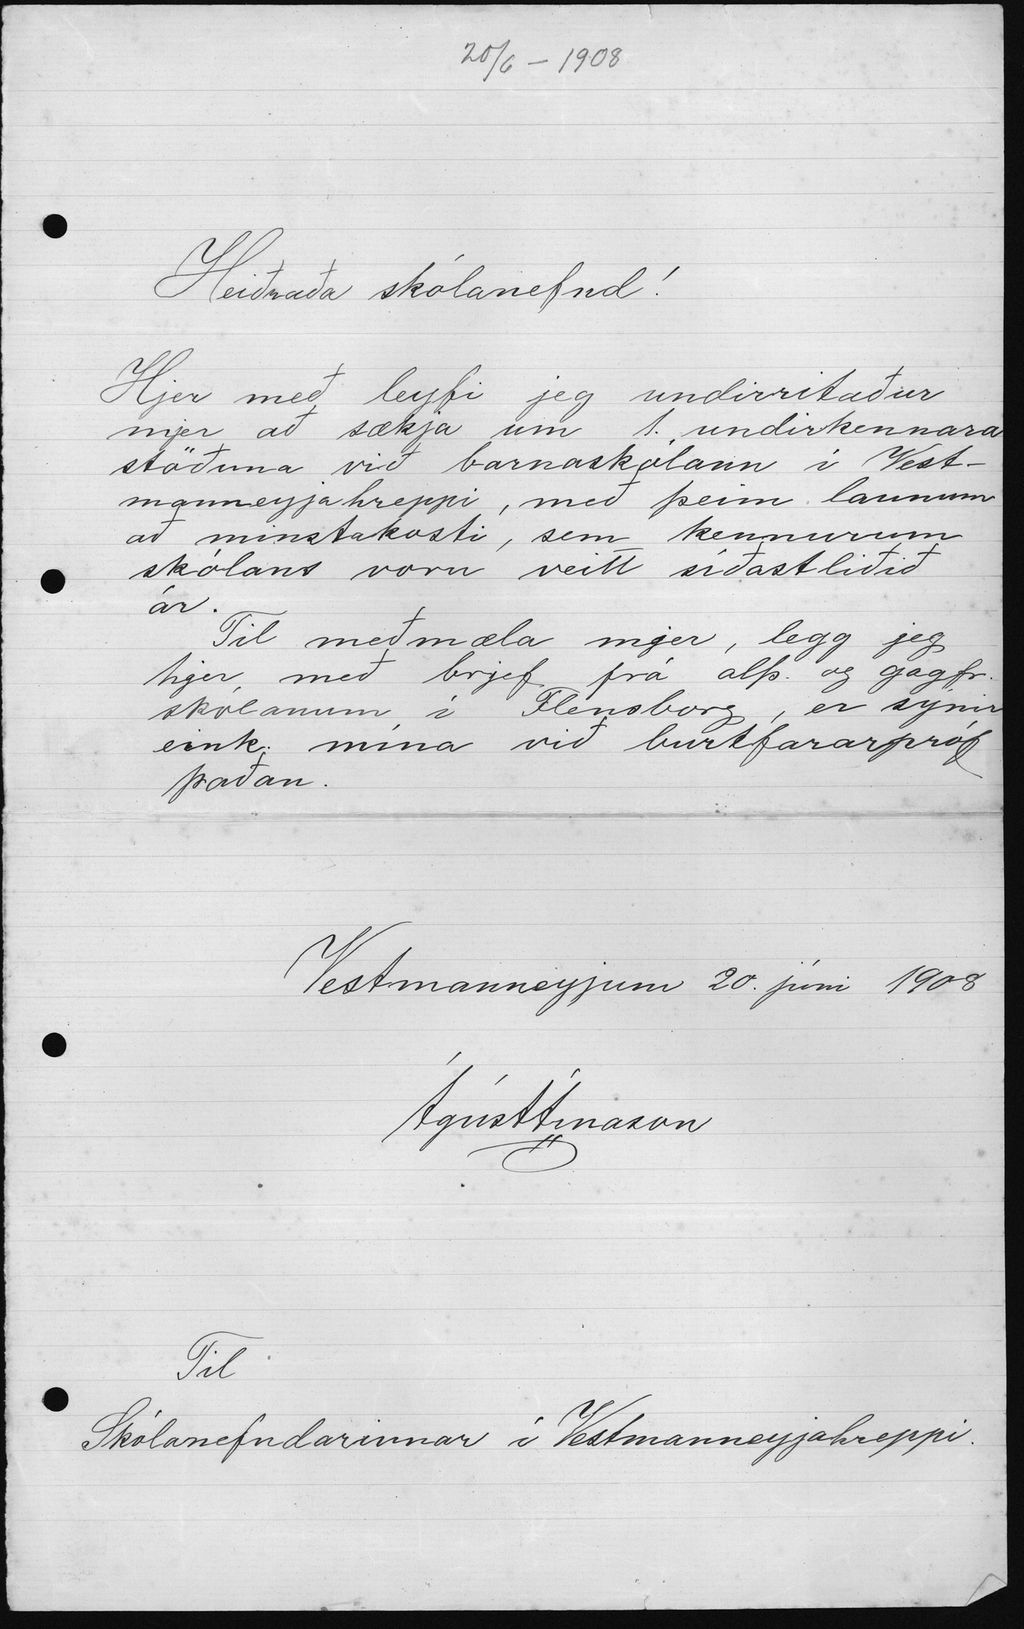 20/6 – 1908
Heiðraða skólanefnd!
Hjer með leyfi jeg undirritaður
mjer að sækja um 1. undirkennara
stöðuna við barnaskólann í Vest-
manneyjahreppi, með þeim launum
að minstakosti, sem kennurum
skólans voru veitt síðastliðið
ár.
Til meðmæla mjer, legg jeg
hjer með brjef frá alþ. og gagfr.
skólanum í Flensborg, er sýnir
eink. mína við burtfararpróf
þaðan.
Vestmanneyjum 20. júni 1908
Ágúst Árnason
Til
Skólanefndarinnar í Vestmanneyjahreppi.